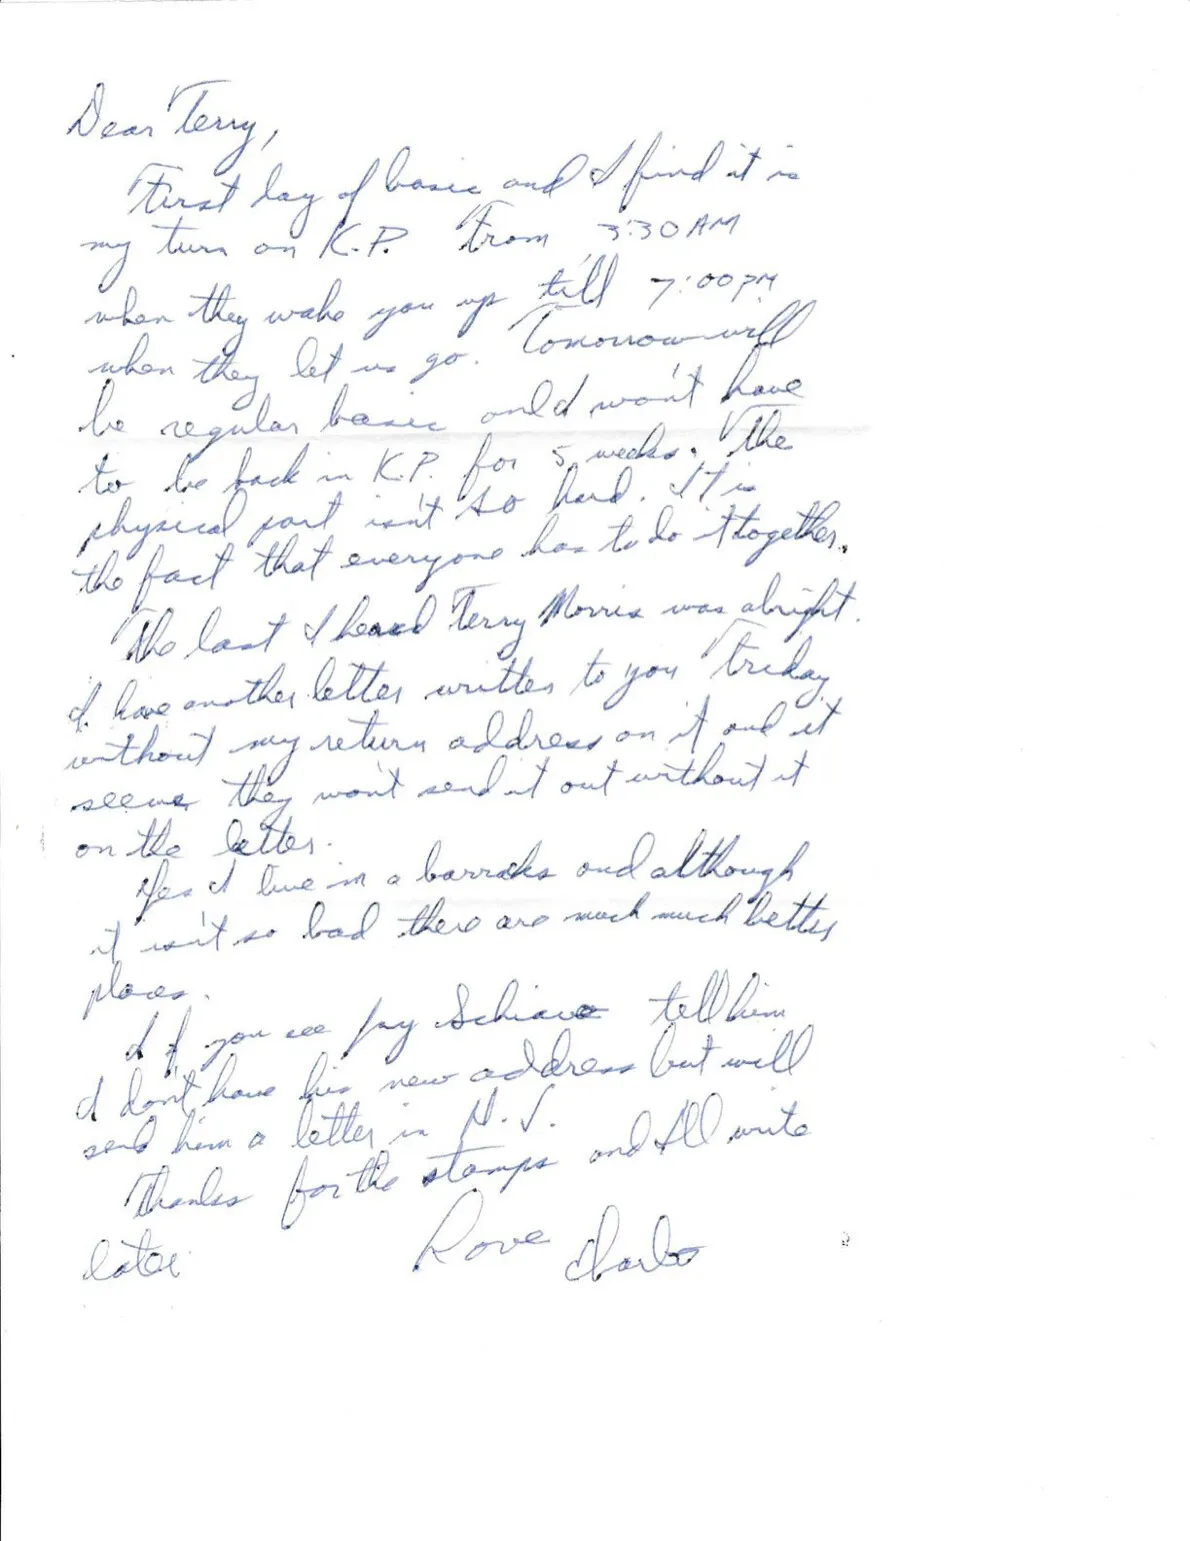 Dear Terry,
First day of basic and I find it is
my turn on K.P. From 3:30AM
when they wake you up till 7:00PM
when they let us go. Tomorrow will
be regular basic and I won't have
to be back in K.P. for 5 weeks. The
physical part isn't so hard. It is
the fact that everyone has to do it together.
The last I heard Terry Morris was alright.
I have another letter written to you Friday
without my return address on it and it
seems they won't send it out without it
on the letter.
Yes I live in a barracks and although
it isn't so bad there are much much better
places.
If you see Jay Schiavo tell him
I don't have his new address but will
send him a letter in N.J.
Thanks for the stamps and I'll write
later
Love